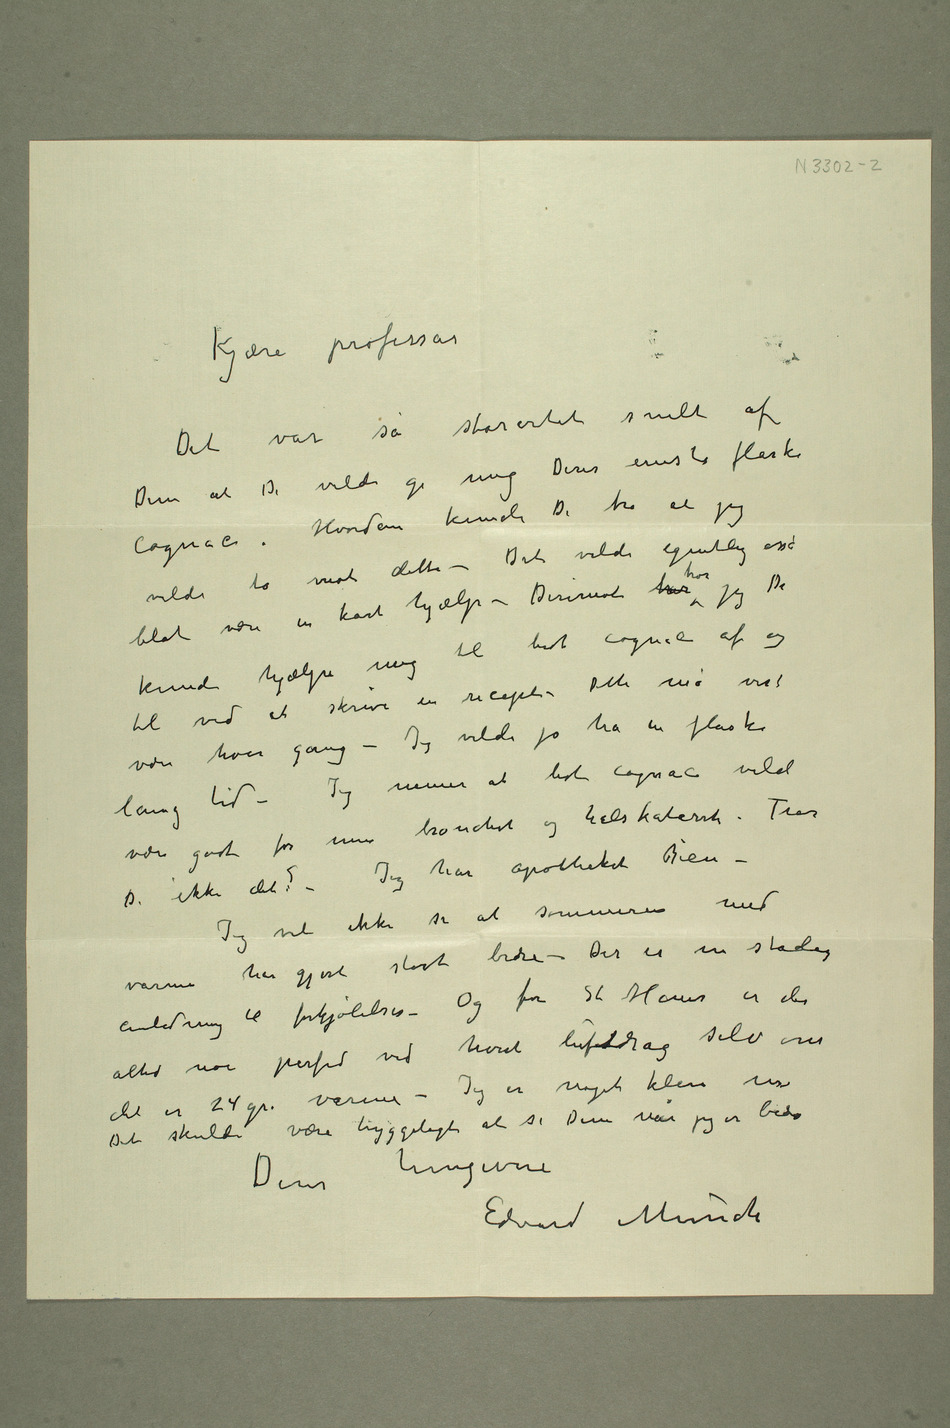 N 3302-2
Kjære professor
Det var så storartet snilt af
Dem at De vilde gi mig Deres eneste flaske
cognac. Hvordan kunde De tro at jeg
vilde ta mot dette – Det vilde egentlig også
blot være en kort hjælp – Derimot tror jeg De
kunde hjælpe mig til lidt cognac af og
til ved at skrive en recept – Dette må vist
være hver gang – Jeg vilde jo ha en flaske
lang tid – Jeg mener at lidt cognac vild
være godt for min bronchit og halskatarrh. Tror
De ikke det? – Jeg har apotheket Bien –
Jeg vil ikke si at sommeren med
varme har gjort stort bedre – Der er en stadig
anledning til forkjølelse – Og før St Hans er der
altid noe perfid ved hvert luftdrag selv om
det er 24 gr. varme – Jeg er noget klein nu
Det skulde være hyggeligt at se Dem når jeg er bedre
Deres hengivne
Edvard Munch